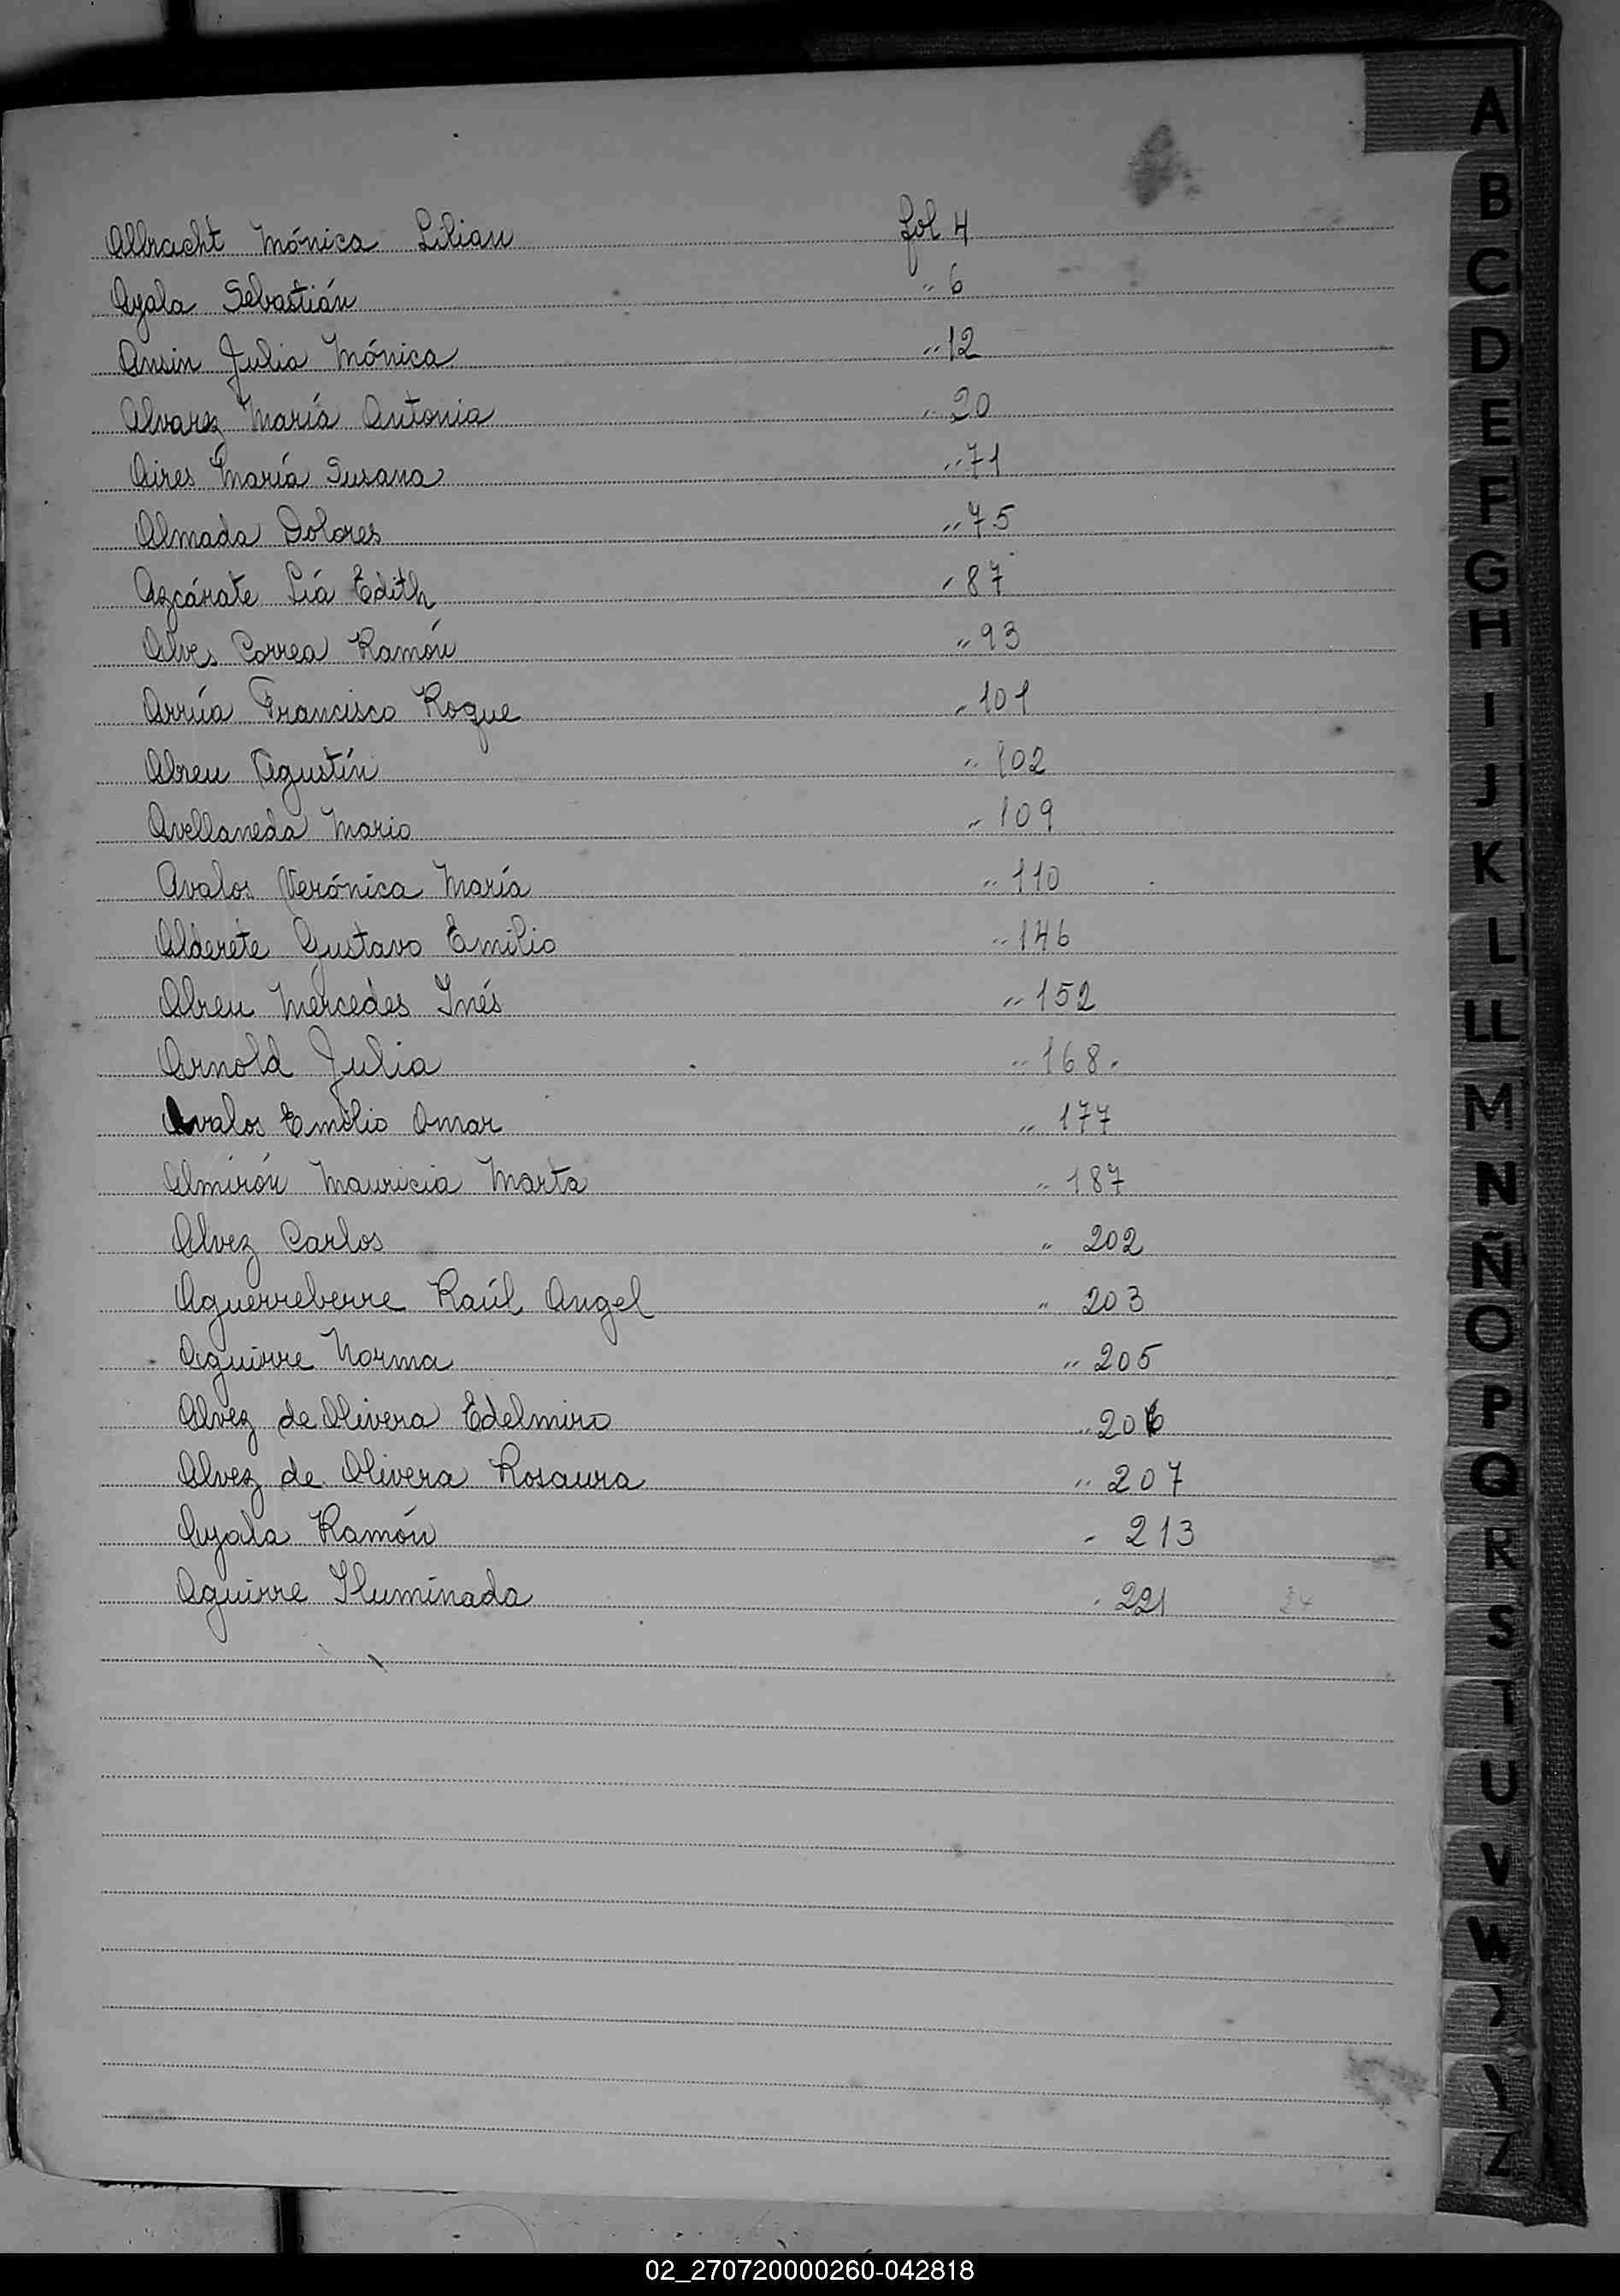 A
B
C
D
E
F
G
H
I
J
K
L
LL
M
N
Ñ
O
P
Q
R
S
T
U
V
W
Z
Albracht Mónica Lilian fol 4
Ayala Sebastián " 6
Ansin Julia Mónica " 12
Alvarez María Antonia " 20
Aires María Susana " 71
Almada Dolores " 75
Azcárate Liá Edith " 87
Alves Correa Ramón " 93
Arrúa Francisco Roque " 101
Abreu Agustín " 102
Avellaneda Mario " 109
Avalos Verónica María " 110
Alderete Gustavo Emilio " 146
Abreu Mercedes Inés " 152
Arnold Julia " 168.
Avalos Emilio Omar " 177
Almirón Mauricia Marta " 187
Alvez Carlos " 202
Aguerreberre Raúl Angel " 203
Aguirre Norma " 205
Alvez de Olivera Edelmiro " 206
Alvez de Olivera Rosaura " 207
Ayala Ramón " 213
Aguirre Iluminada " 221
02_270720000260-042818